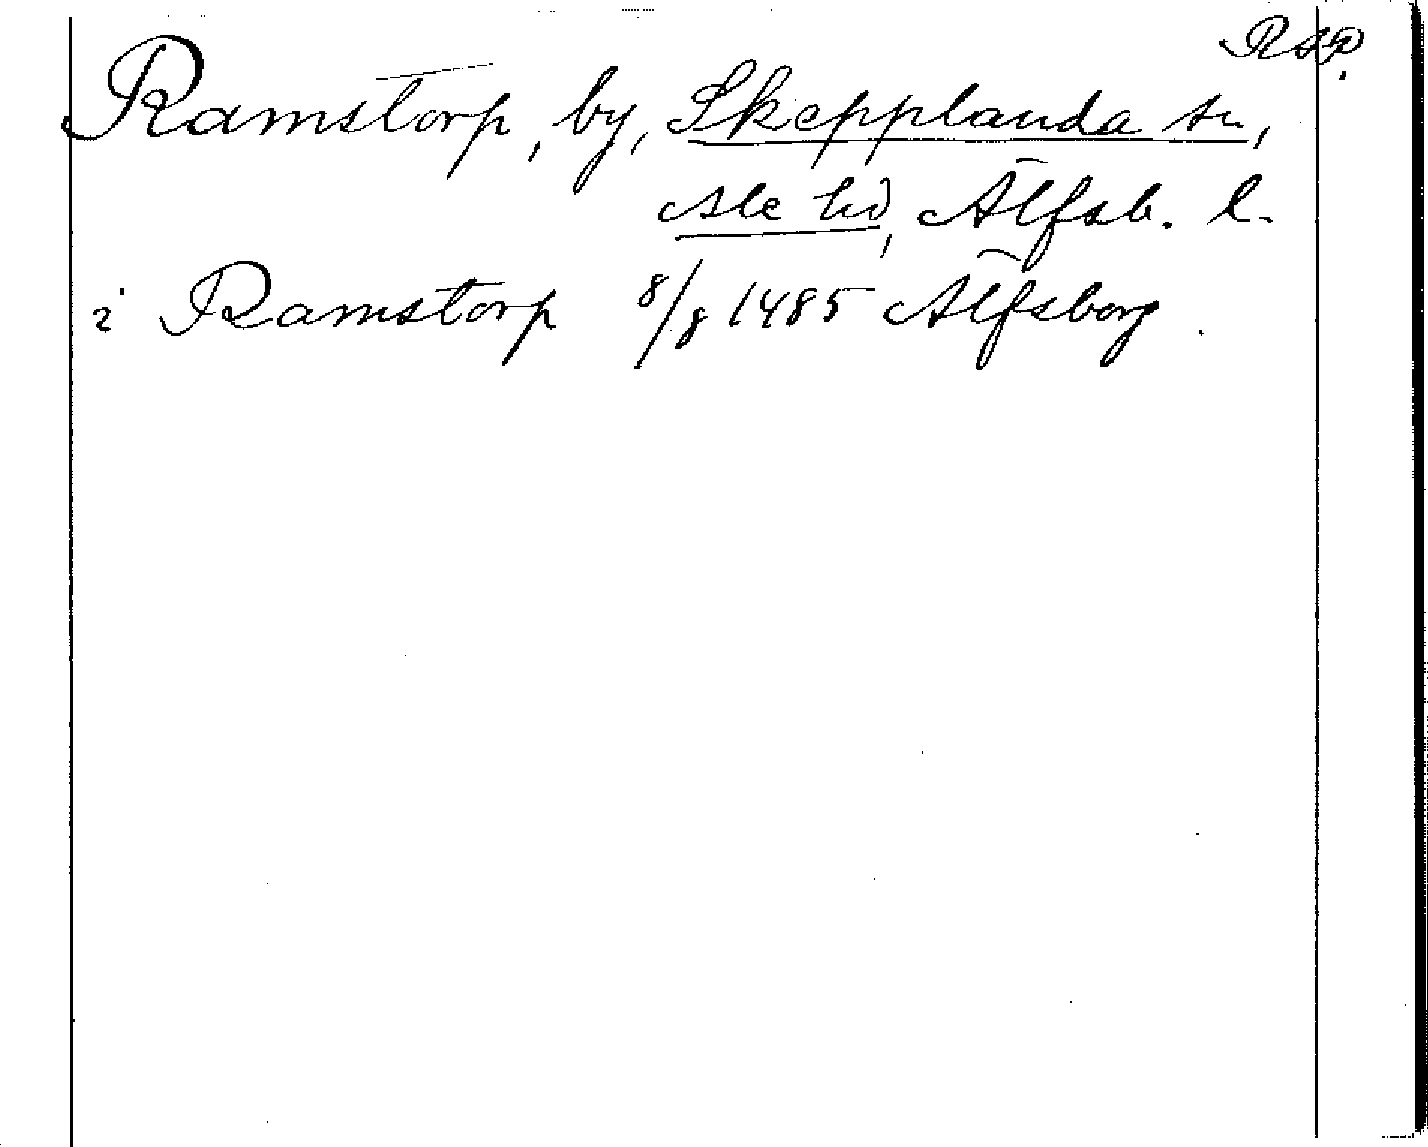 RAP.
Ramstorp, by, Skepplanda sn,
Ale hd, Älfsb. l.
i Ramstorp 8/8 1485 Älfsborg.